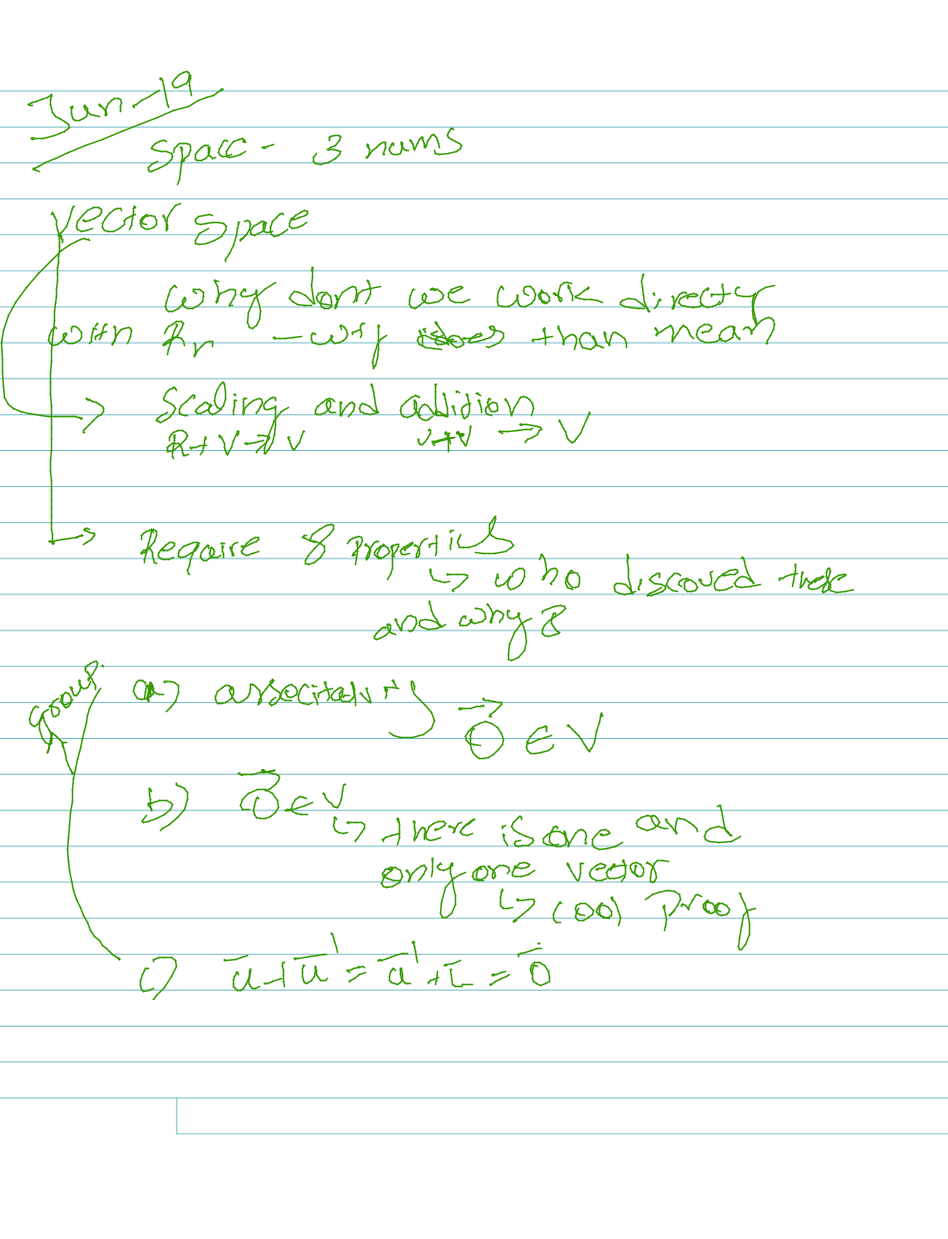 Jun-19
Space - 3 nums
Vector Space
why dont we work directy
with Rn - wtf does than mean
Scaling and addition
R+V→V V+V → V
Require 8 Properties
↳ who discoved these
and why 8
Group
a) associtativity
0⃗ ∈ V
b) 0⃗ ∈ V
↳ there is one and
only one vector
↳ cool Proof
c) u̅ + u̅' = u̅' + u̅ = 0̅